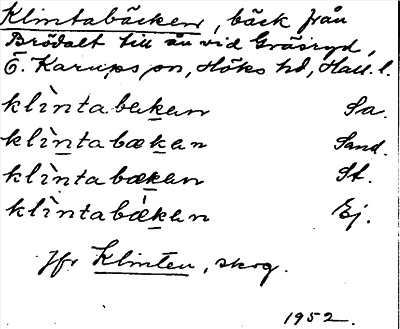 Klintabäcken, bäck från
Brödalt till ån vid Gräsryd,
Ö. Karups sn, Höks hd, Hall. l.
klìntabækan Sa.
klìntabækan Sand.
klìntabækan St.
klìntabǽkan Ej.
Jfr Klinten, skog.
1952.